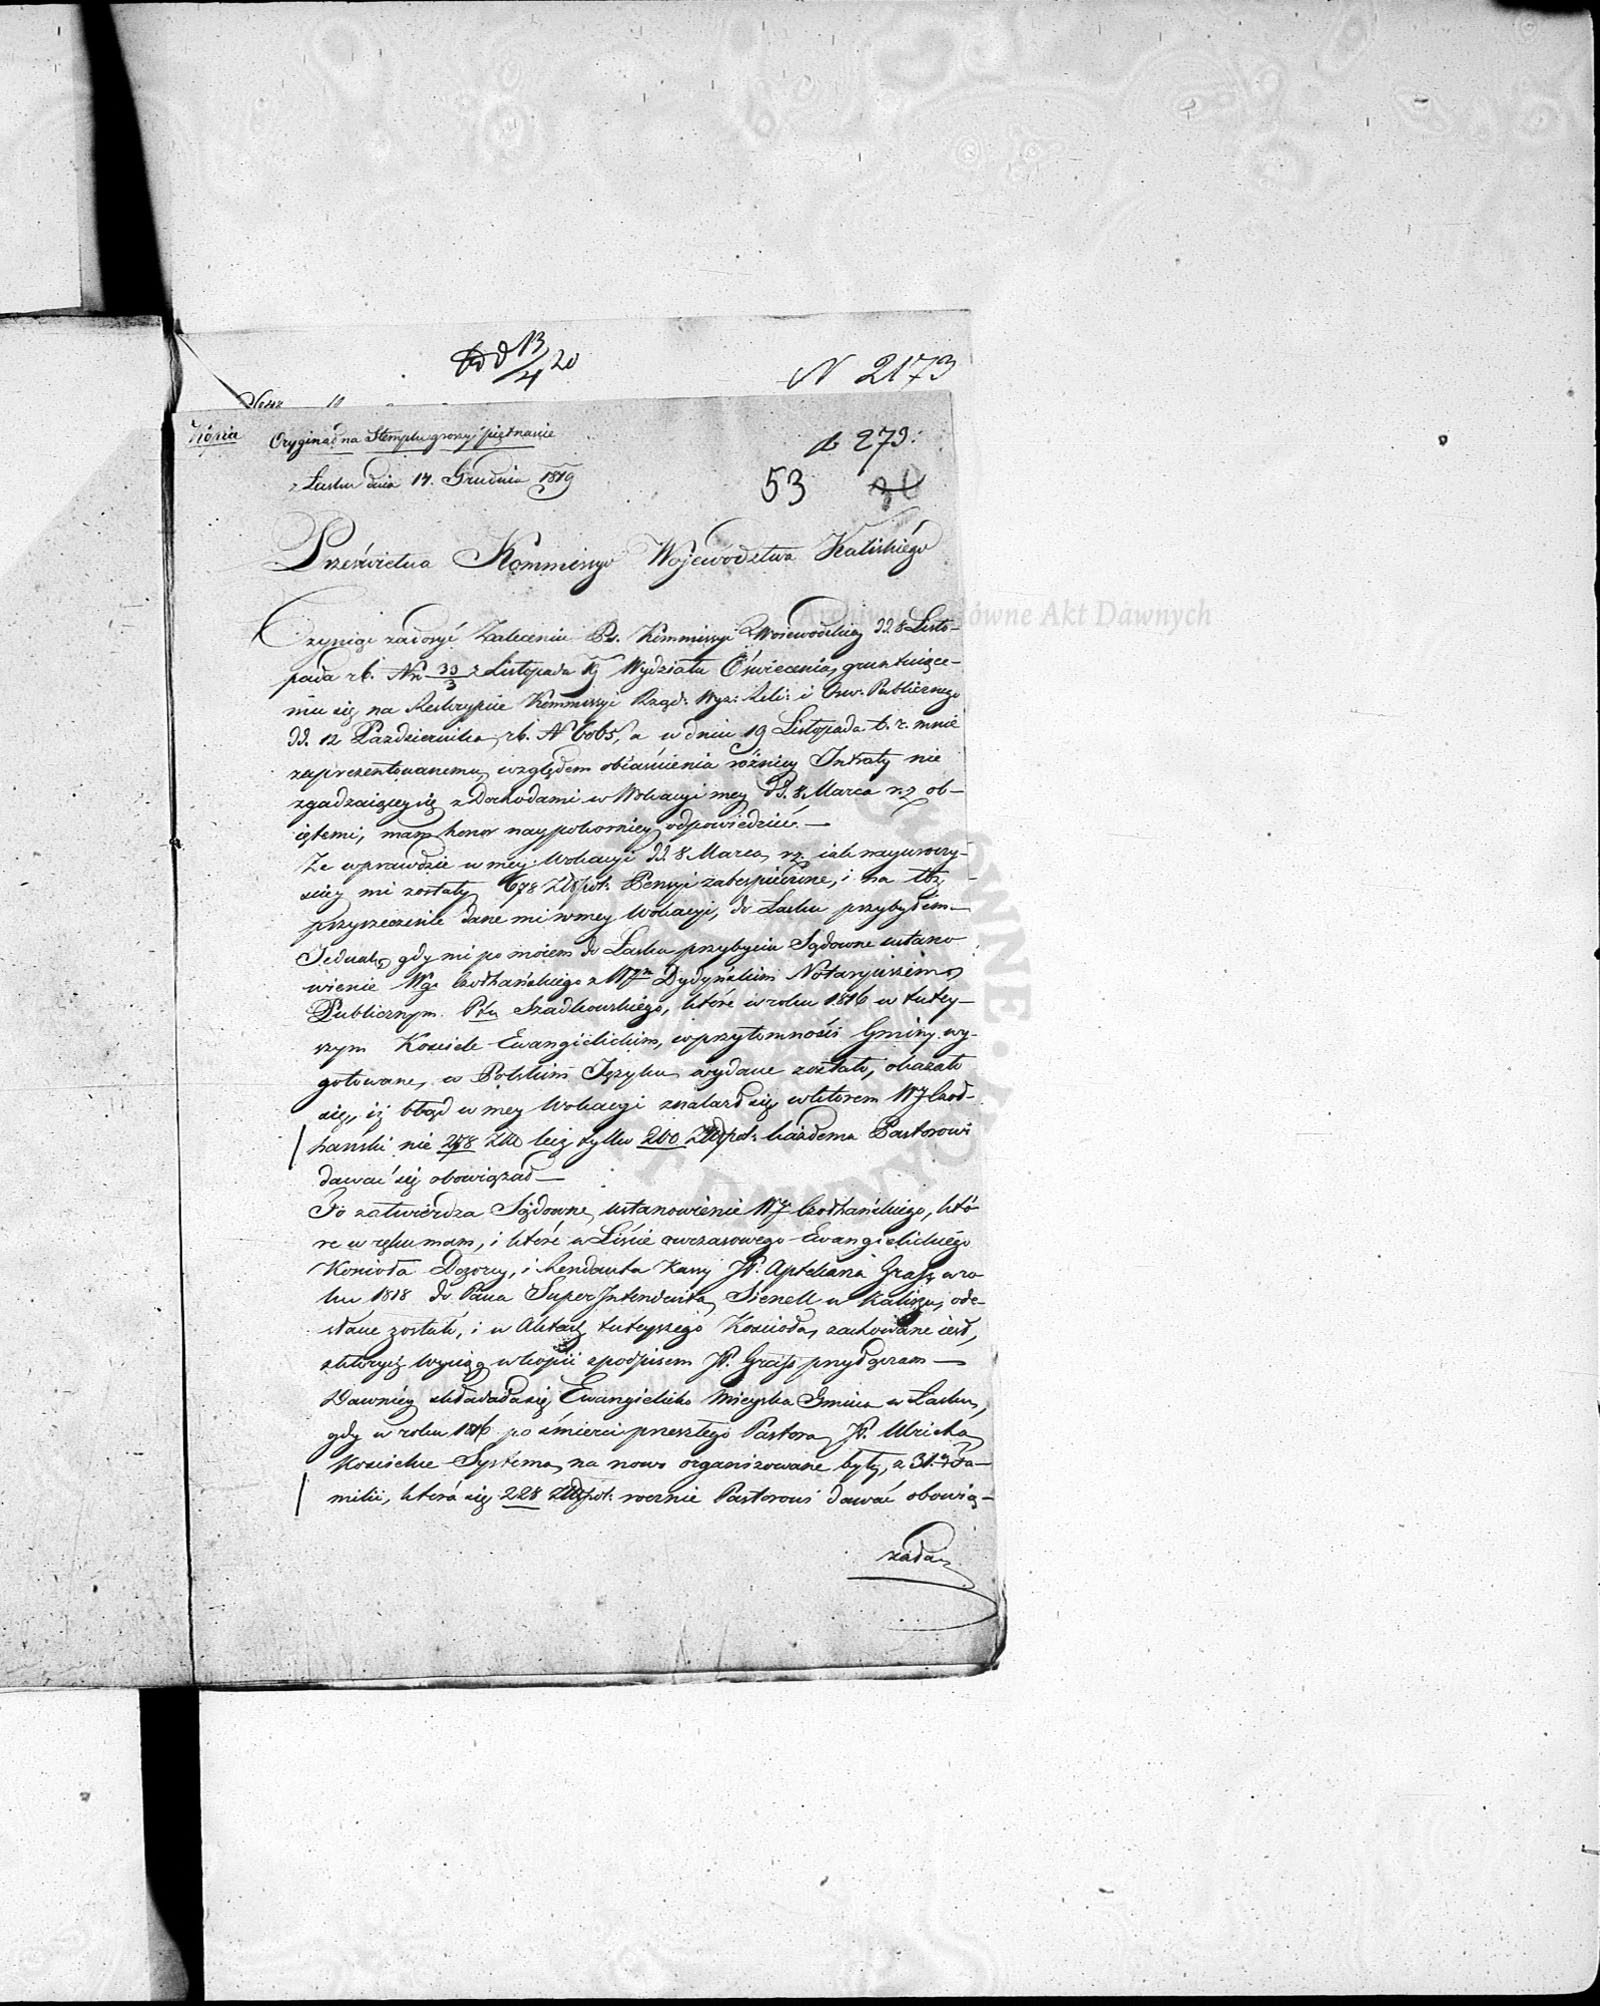 13/4 20
N 2173
Kópia
Oryginał na Stemplu groszy piętnaście
273.
z Łasku dnia 14. Grudnia 1819
53
Prześwietna Kommissyo Województwa Kaliskiego
Czyniąc zadosyć Zaleceniu Prz. Kommissyi Wojewódzkiey dd. 8 Listo-
pada rb. Nr. 33/3 z Listopada Wydziału Oświecenia, gruntuiące-
mu się na Reskrypcie Kommissyi Rząd. Wyz: Reli: i Ośw. Publicznego
dd. 12 Października rb. N 6065, a w dniu 19 Listopada b. r. mnie
zaprezentowanemu, względem obiaśnienia różnicy Intraty nie
zgadzaiącey się z Dochodami w Wokacyi mey dd. 8. Marca r. z. ob-
iętemi, mam honor naypokorniey odpowiedzieć. —
Że wprawdzie w mey Wokacyi dd. 8 Marca, rz. iak nayuroczy-
ściey mi zostały 678 Złłpol: Pensyi zabespieczone, i na to
przyrzeczenie dane mi w mey Wokacyi, do Łasku przybyłem —
Jednak, gdy mi po moiem do Łasku przybyciu Sądowne ustano
wienie Wgo Czołhańskiego z Wym Dydyńskim Notaryuszem
Publicznym Ptu Szadkowskiego, które w roku 1816 w tutey-
szym Kościele Ewangielickim, w przytomności Gminy wy-
gotowane, w Polskim Języku wydane zostało, okazało
się, iż błąd w mey Wokacyi znalazł się, w którem WJ Czoł-
hański nie 278 Złł lecz tylko 200 Złłpol: każdemu Pastorowi
dawać się obowiązał —
To zatwierdza Sądowne ustanowienie WJ Czołhańskiego, któ-
re w ręku mam, i które w Liście owczasowego Ewangielickiego
Kościoła Dozorcy, i Rendanta Kassy JP. Aptekarza Grass w ro
ku 1818 do Pana Super Intendenta, Sienell w Kaliszu, ode-
słane zostało, i w Aktach tuteyszego Kościoła, zachowane iest,
z których wyciąg w kopii z podpisem JP. Grass przyłączam —
Dawniey składała się Ewangielicka Mieyska Gmina w Łasku,
gdy w roku 1816 po śmierci przeszłego Pastora, JP. Ulricha,
Kościelne Systema, na nowo organizowane były, z 31. Fa-
milii, która się 228 Złłpol: rocznie Pastorowi dawać obowią-
zała
Archiwum Główne Akt Dawnych